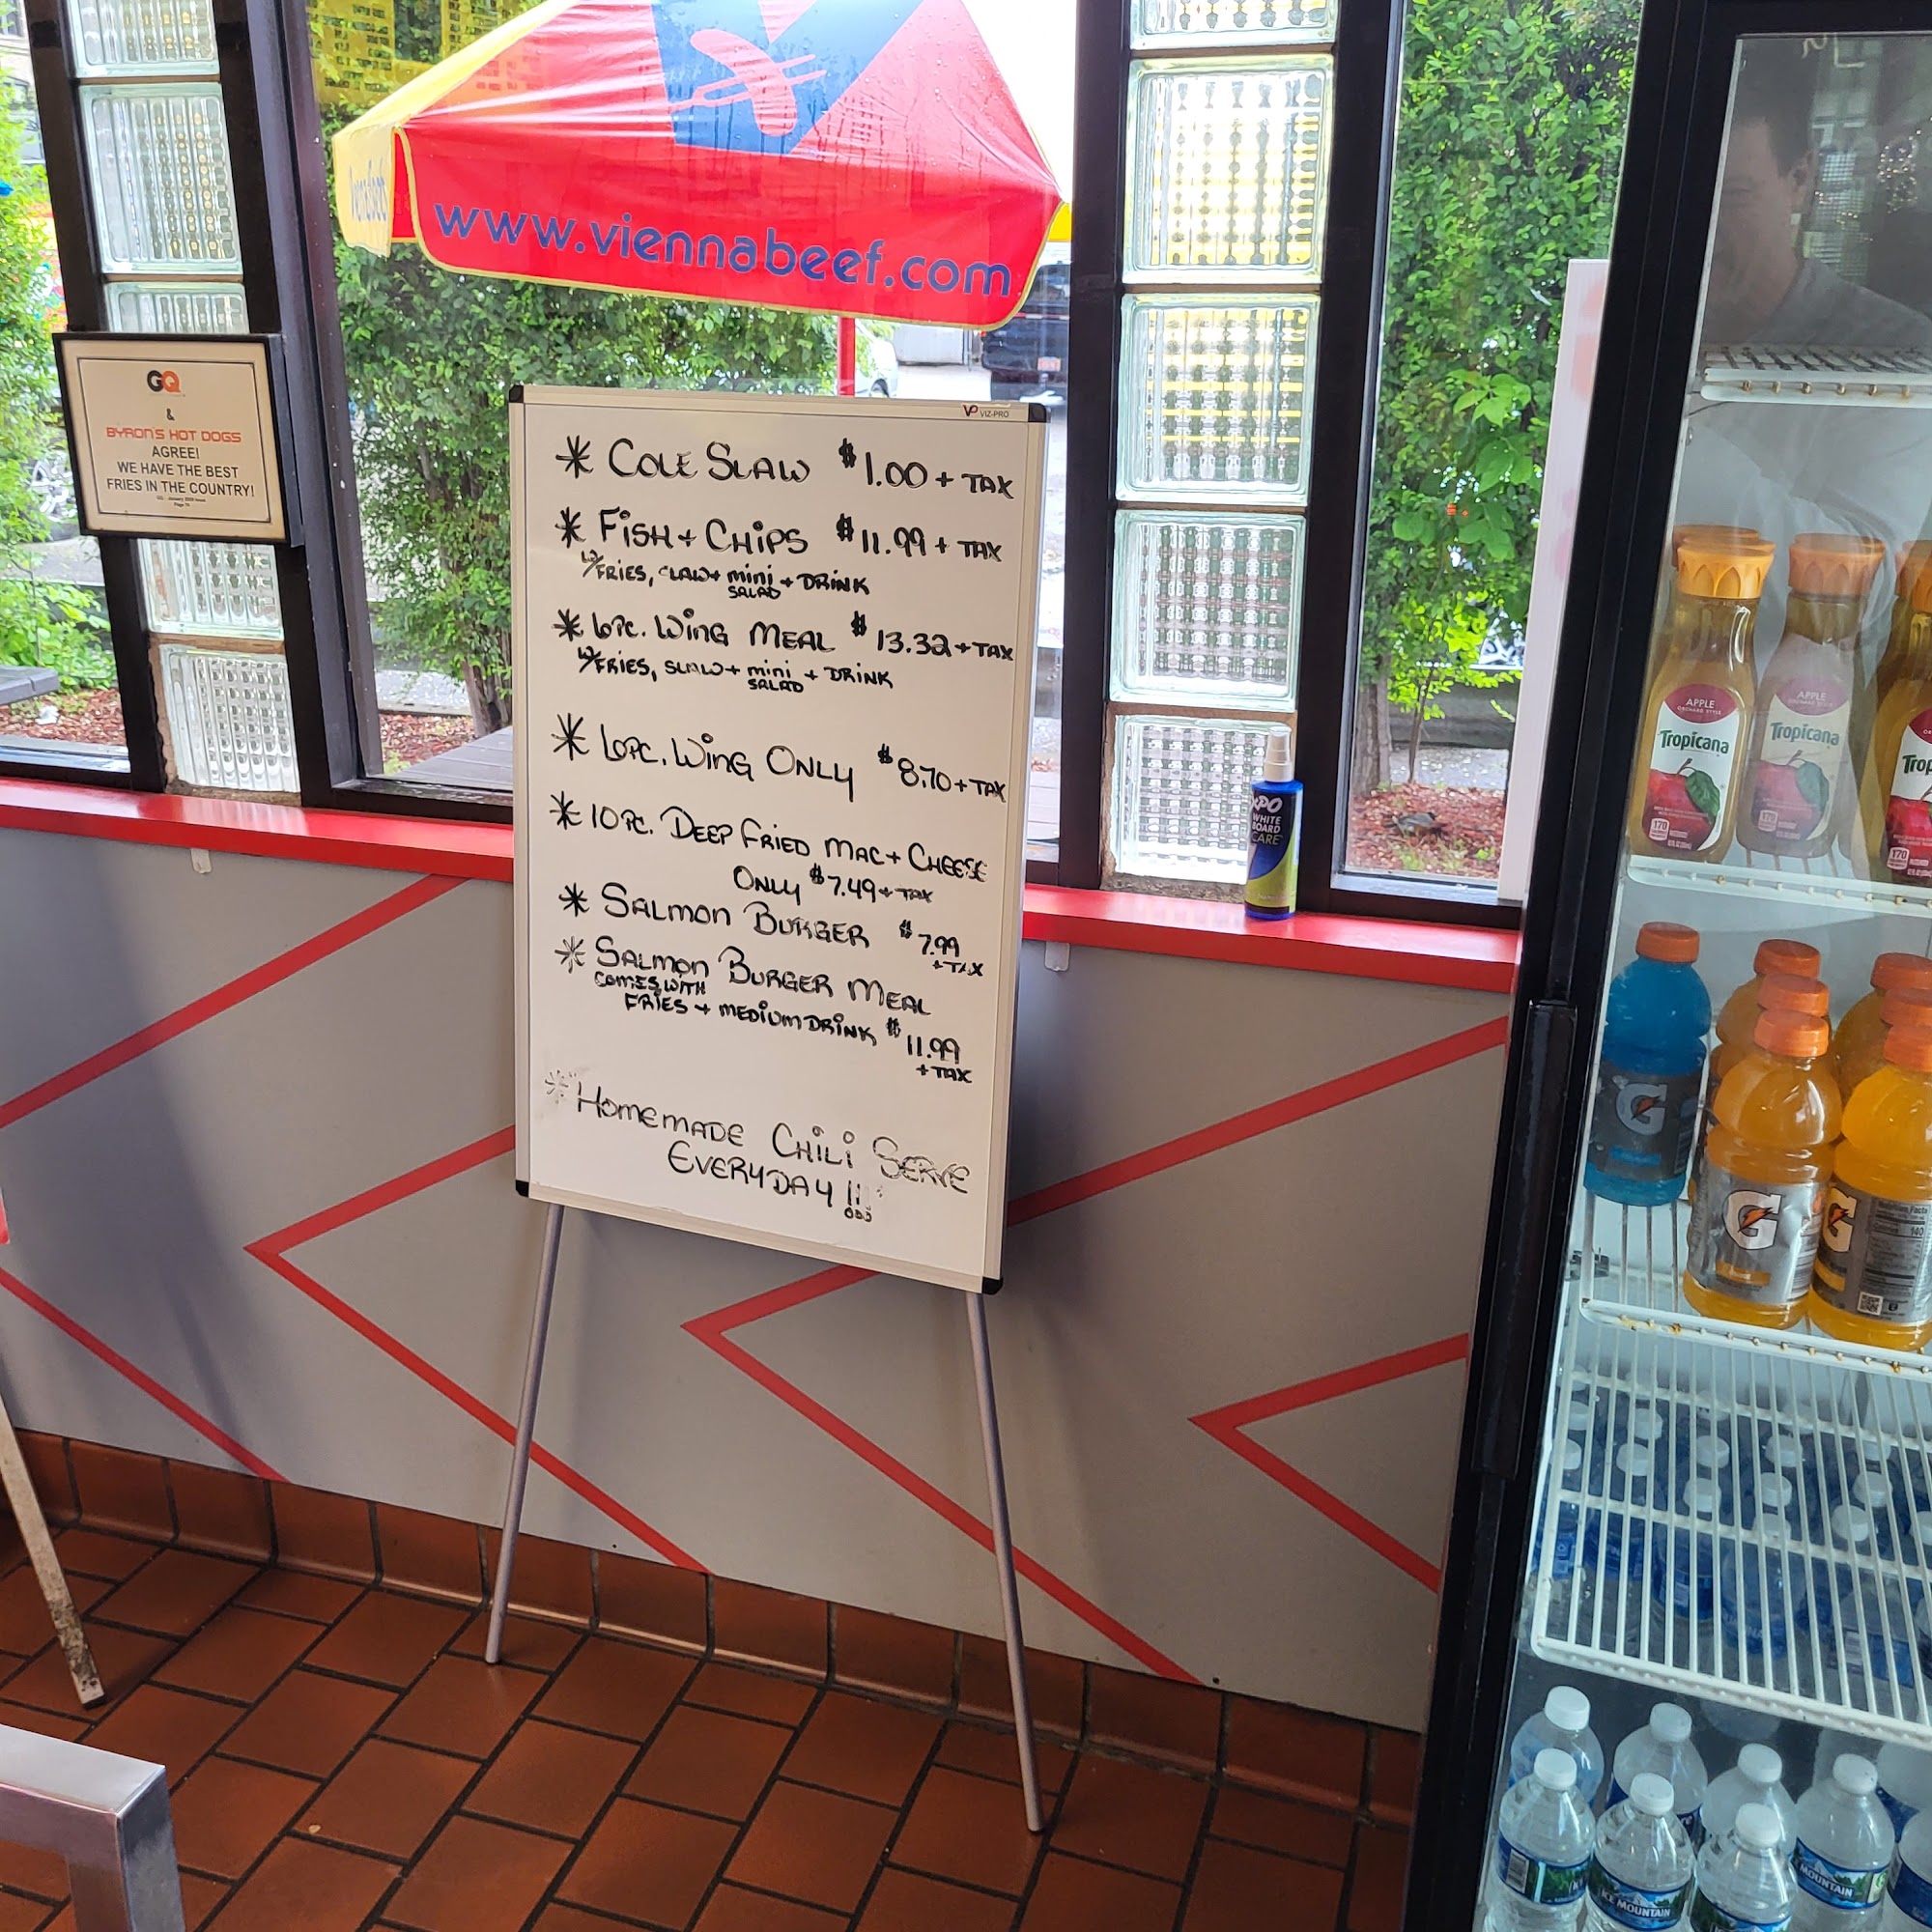 www.viennabeef.com
GQ
&
BYRON'S HOT DOGS
AGREE!
WE HAVE THE BEST
FRIES IN THE COUNTRY!
VIZ-PRO
* COLE SLAW $1.00 + TAX
* FISH + CHIPS $11.99 + TAX
W/FRIES, SLAW + mini SALAD + DRINK
* 6PC. WING MEAL $13.32 + TAX
W/FRIES, SLAW + mini SALAD + DRINK
* 6PC. WING ONLY $8.70 + TAX
* 10 PC. DEEP FRIED MAC + CHEESE
ONLY $7.49 + TAX
* SALMON BURGER $7.99
+ TAX
* SALMON BURGER MEAL
COMES WITH
FRIES + MEDIUM DRINK $11.99
+ TAX
* HOMEMADE CHILI SERVE
EVERYDAY !!!
EXPO
WHITE
BOARD
CARE
APPLE
ORCHARD STYLE
Tropicana
170
APPLE
Tropicana
170
170
G
G
G
140
ICE MOUNTAIN
MOUNTAIN